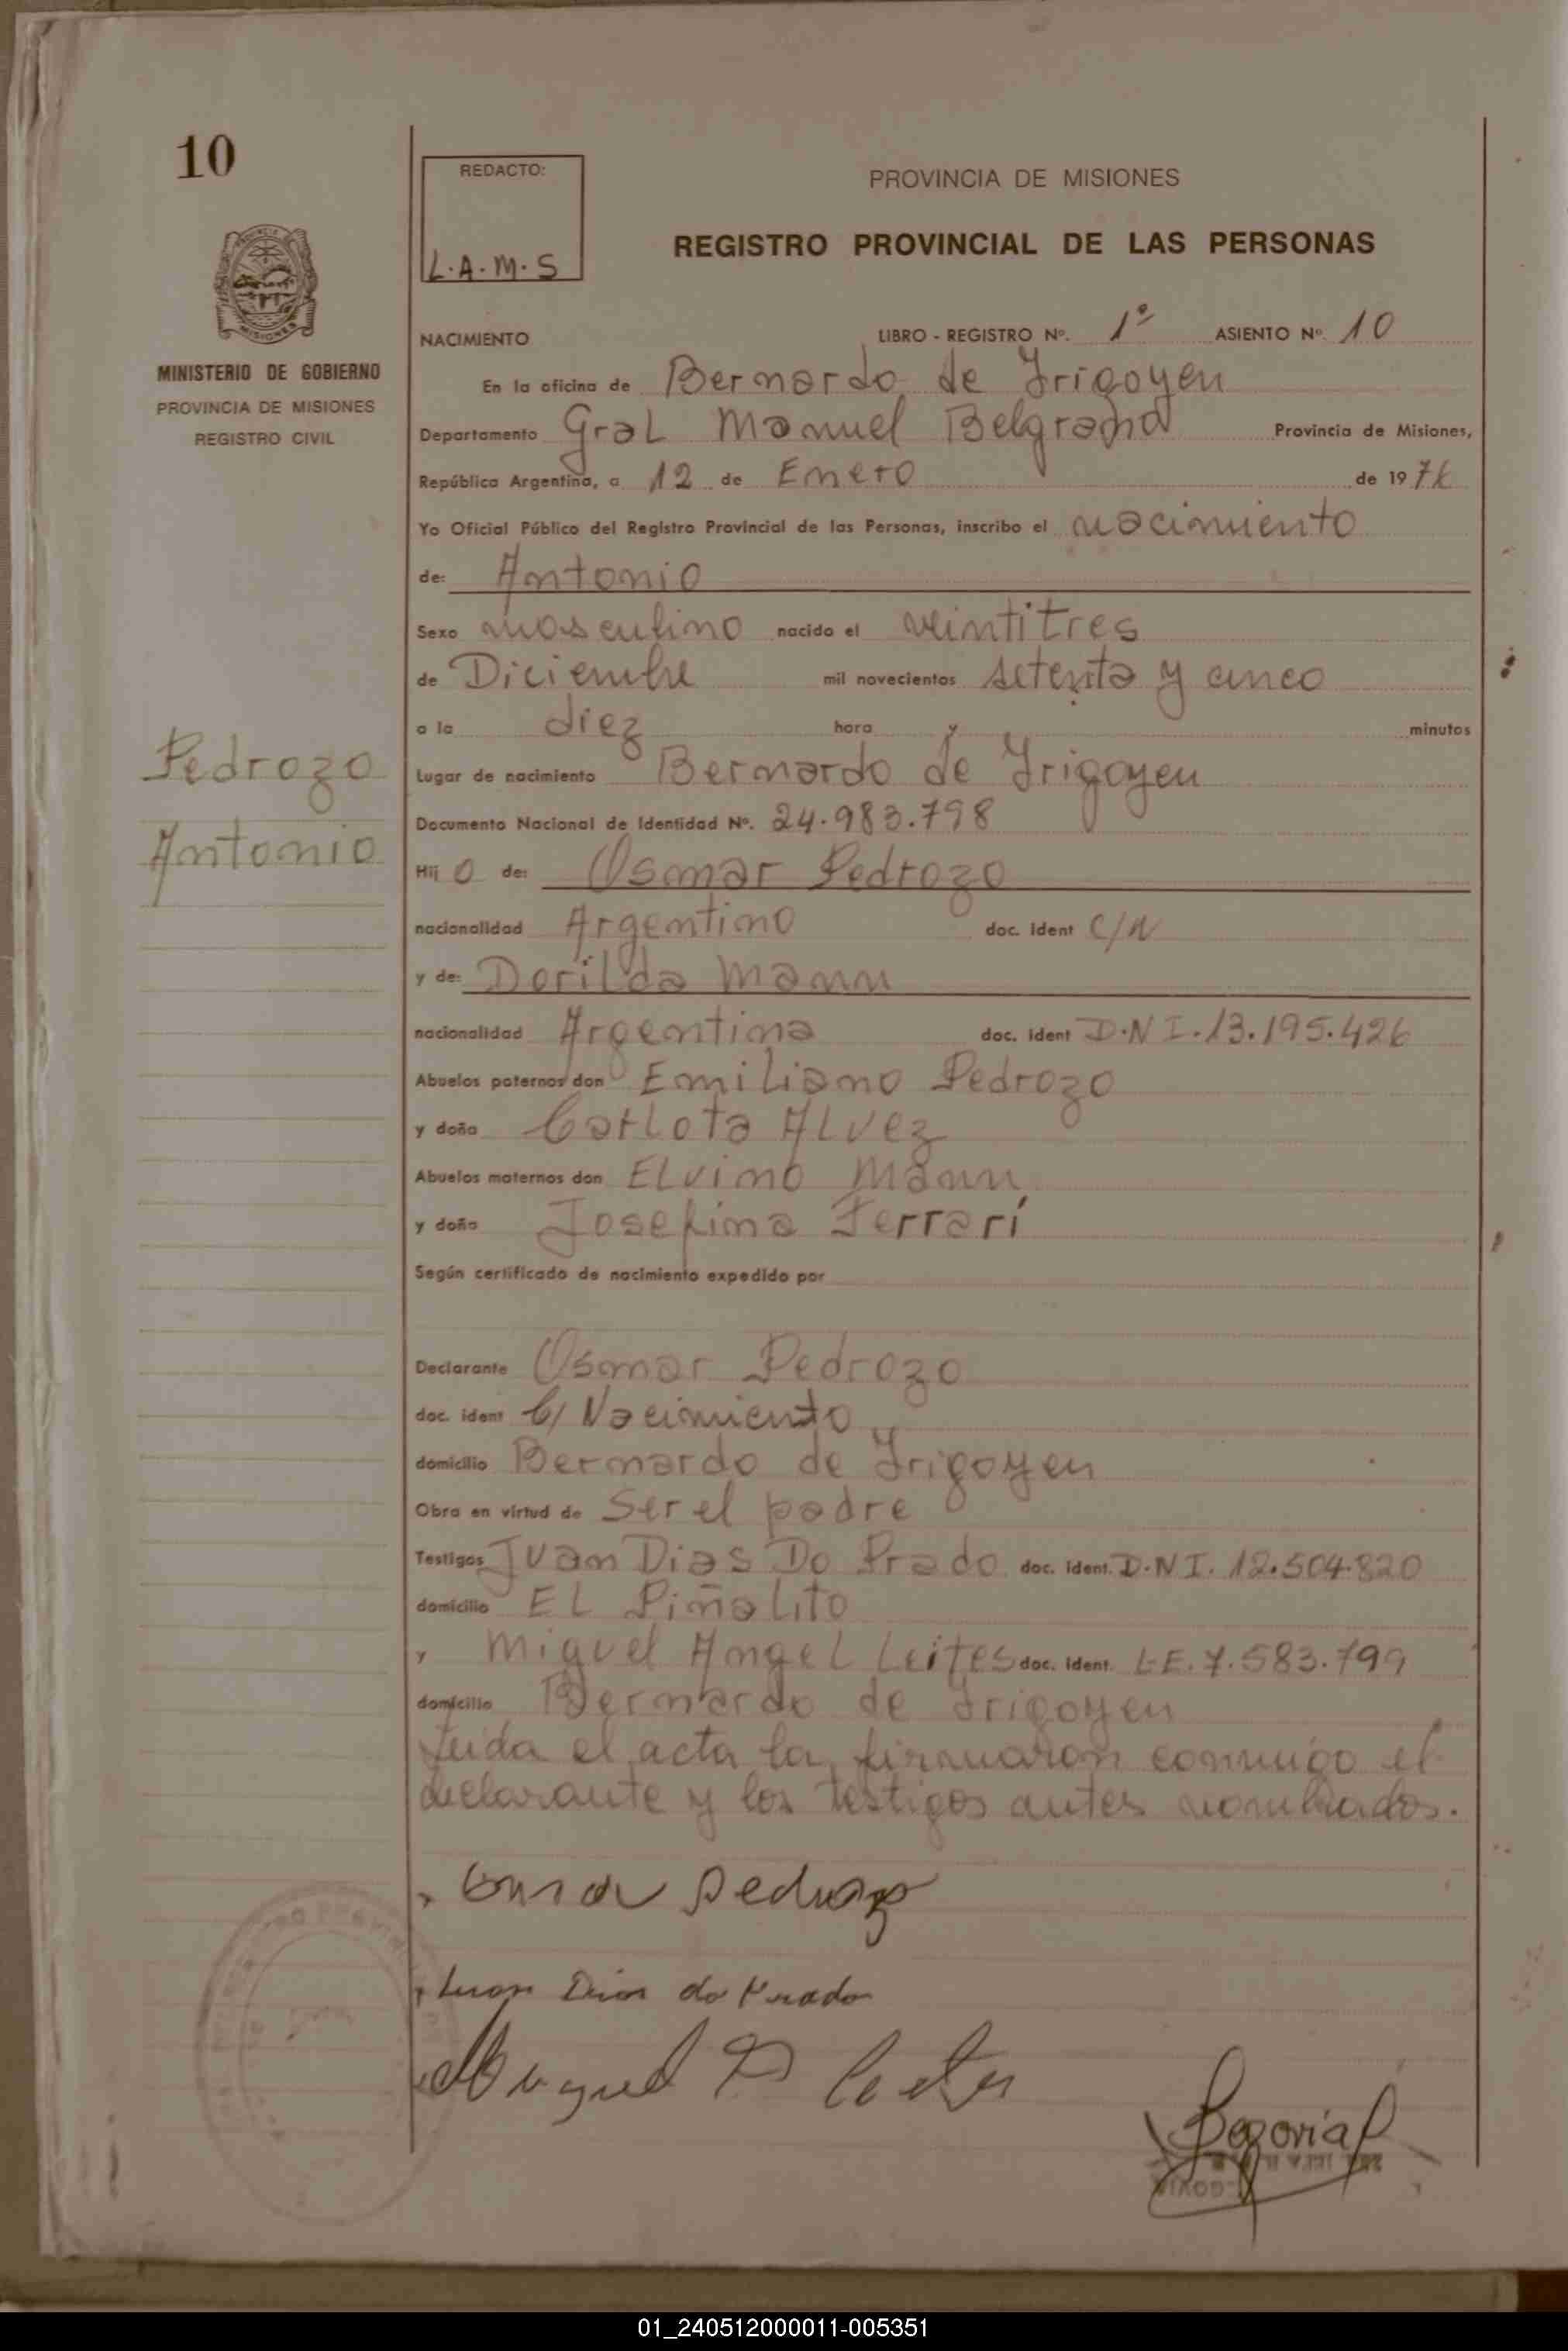 10
REDACTO:
L.A.M.S
PROVINCIA DE MISIONES
REGISTRO PROVINCIAL DE LAS PERSONAS
MINISTERIO DE GOBIERNO
PROVINCIA DE MISIONES
REGISTRO CIVIL
NACIMIENTO LIBRO - REGISTRO Nº. 1º ASIENTO Nº. 10
En la oficina de Bernardo de Irigoyen
Departamento Gral Manuel Belgrano Provincia de Misiones,
República Argentina, a 12 de Enero de 1976
Yo Oficial Público del Registro Provincial de las Personas, inscribo el nacimiento
de: Antonio
Sexo masculino nacido el veintitres
de Diciembre mil novecientos setenta y cinco
a la diez hora y minutos
Pedrozo
Antonio
Lugar de nacimiento Bernardo de Irigoyen
Documento Nacional de Identidad Nº. 24.983.798
Hij o de: Osmar Pedrozo
nacionalidad Argentino doc. ident C/N
y de: Dorilda Mann
nacionalidad Argentina doc. ident D.N I.13.195.426
Abuelos paternos don Emiliano Pedrozo
y doña Carlota Alvez
Abuelos maternos don Elvino Mann
y doña Josefina Ferrari
Según certificado de nacimiento expedido por
Declarante Osmar Pedrozo
doc. ident C/ Nacimiento
domicilio Bernardo de Irigoyen
Obra en virtud de Ser el padre
Testigos Juan Dias Do Prado doc. ident. D.N I. 12.504.820
domicilio El Piñalito
y Miguel Angel Leites doc. ident. L.E. 7.583.799
domicilio Bernardo de Irigoyen
Leida el acta la firmaron conmigo el
declarante y los testigos antes nombrados.
Osmar Pedrozo
Juan Dias do Prado
Miguel A Leites
Segovia
01_240512000011-005351